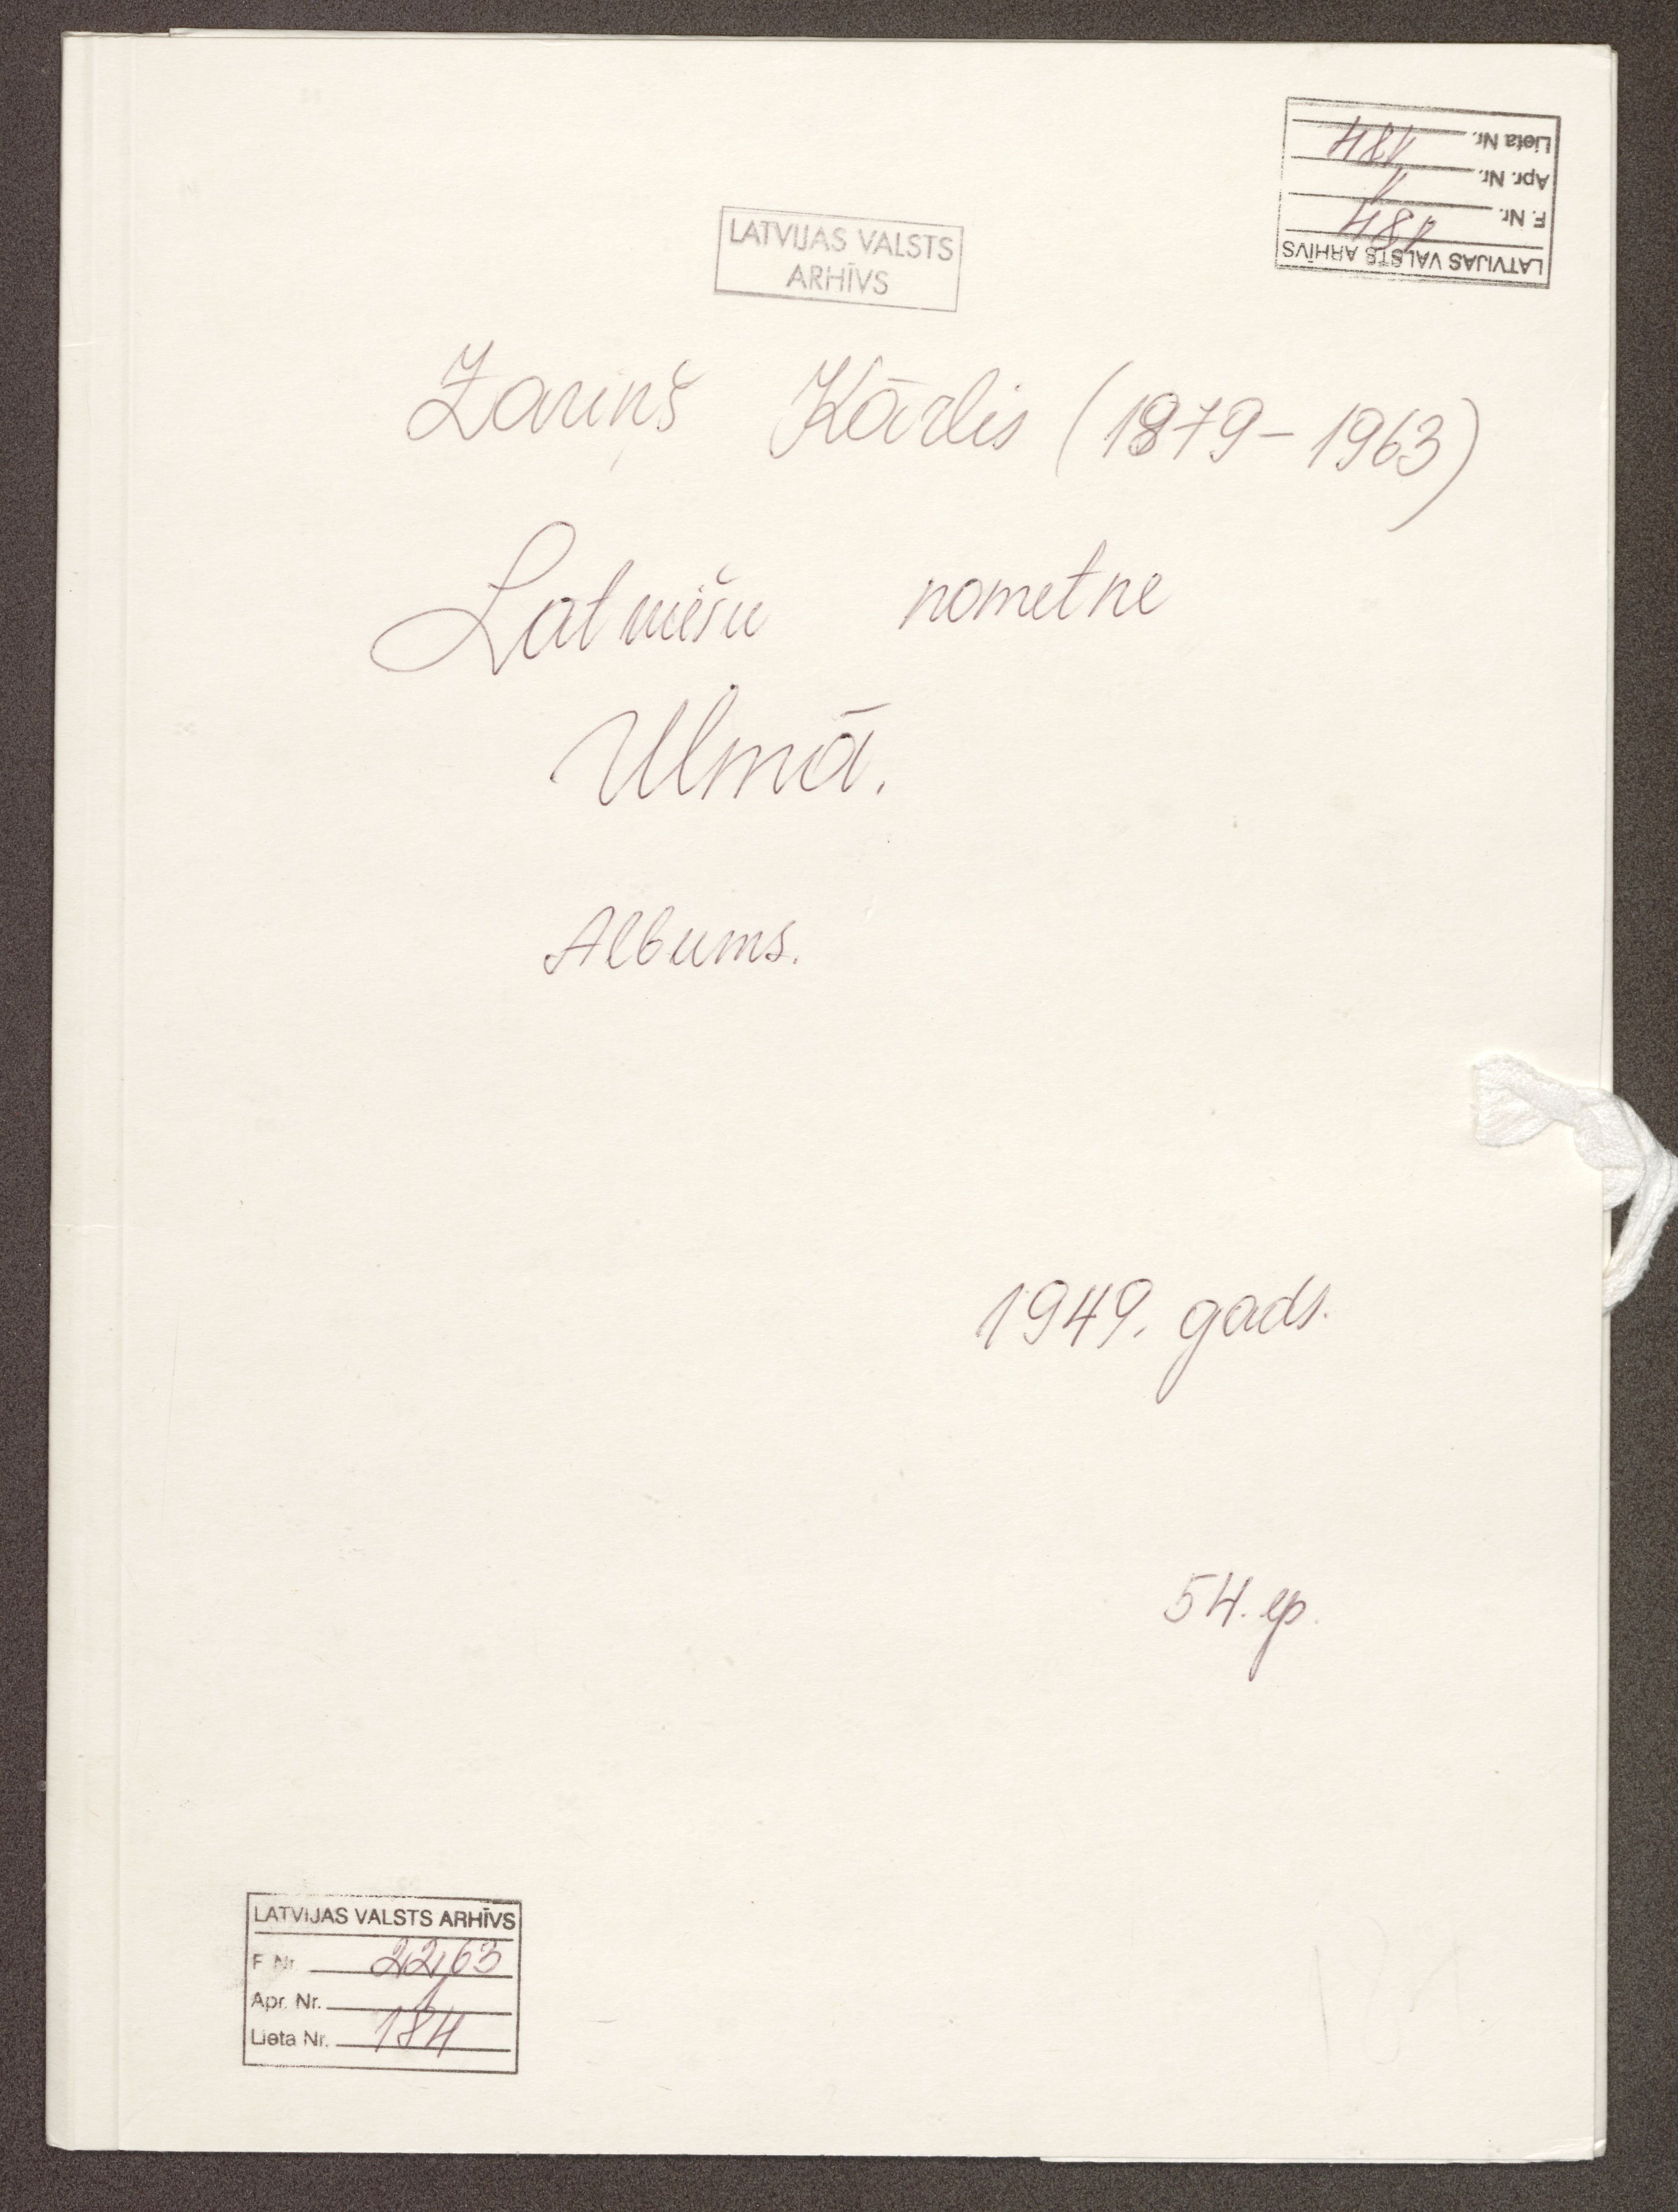 LATVIJAS VALSTS ARHĪVS
F. Nr.
Apr. Nr.
Lieta Nr.
LATVIJAS VALSTS
ARHĪVS
Zariņš Kārlis (1879-1963)
Latviešu nometne
Ulmā.
Albums.
1949. gads.
54. lp.
LATVIJAS VALSTS ARHĪVS
F. Nr. 2263
Apr. Nr. 1
Lieta Nr. 184